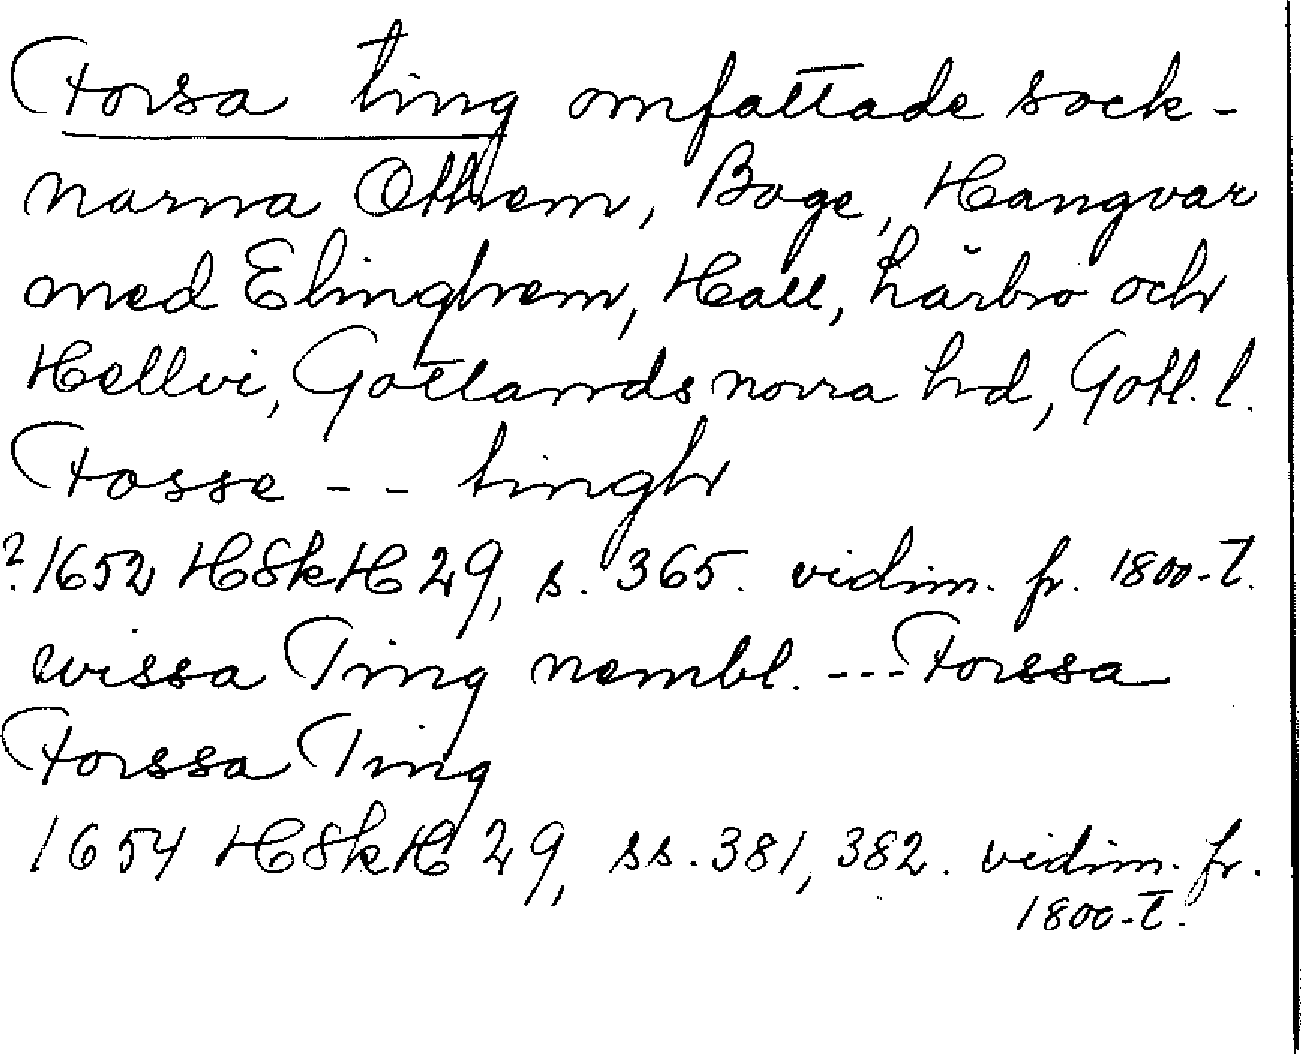 Forsa ting omfattade sock-
narna Othem, Boge, Hangvar
med Elinghem, Hall, Lärbro och
Hellvi, Gotlands norra hd, Gotl. l.
Fosse -- tingh
?1652 HSkH 29, s. 365. vidim. fr. 1800-t.
wissa Ting nembl. --- Forssa
Forssa Ting
1654 HSkH 29, ss. 381, 382. vidim. fr.
1800-t.